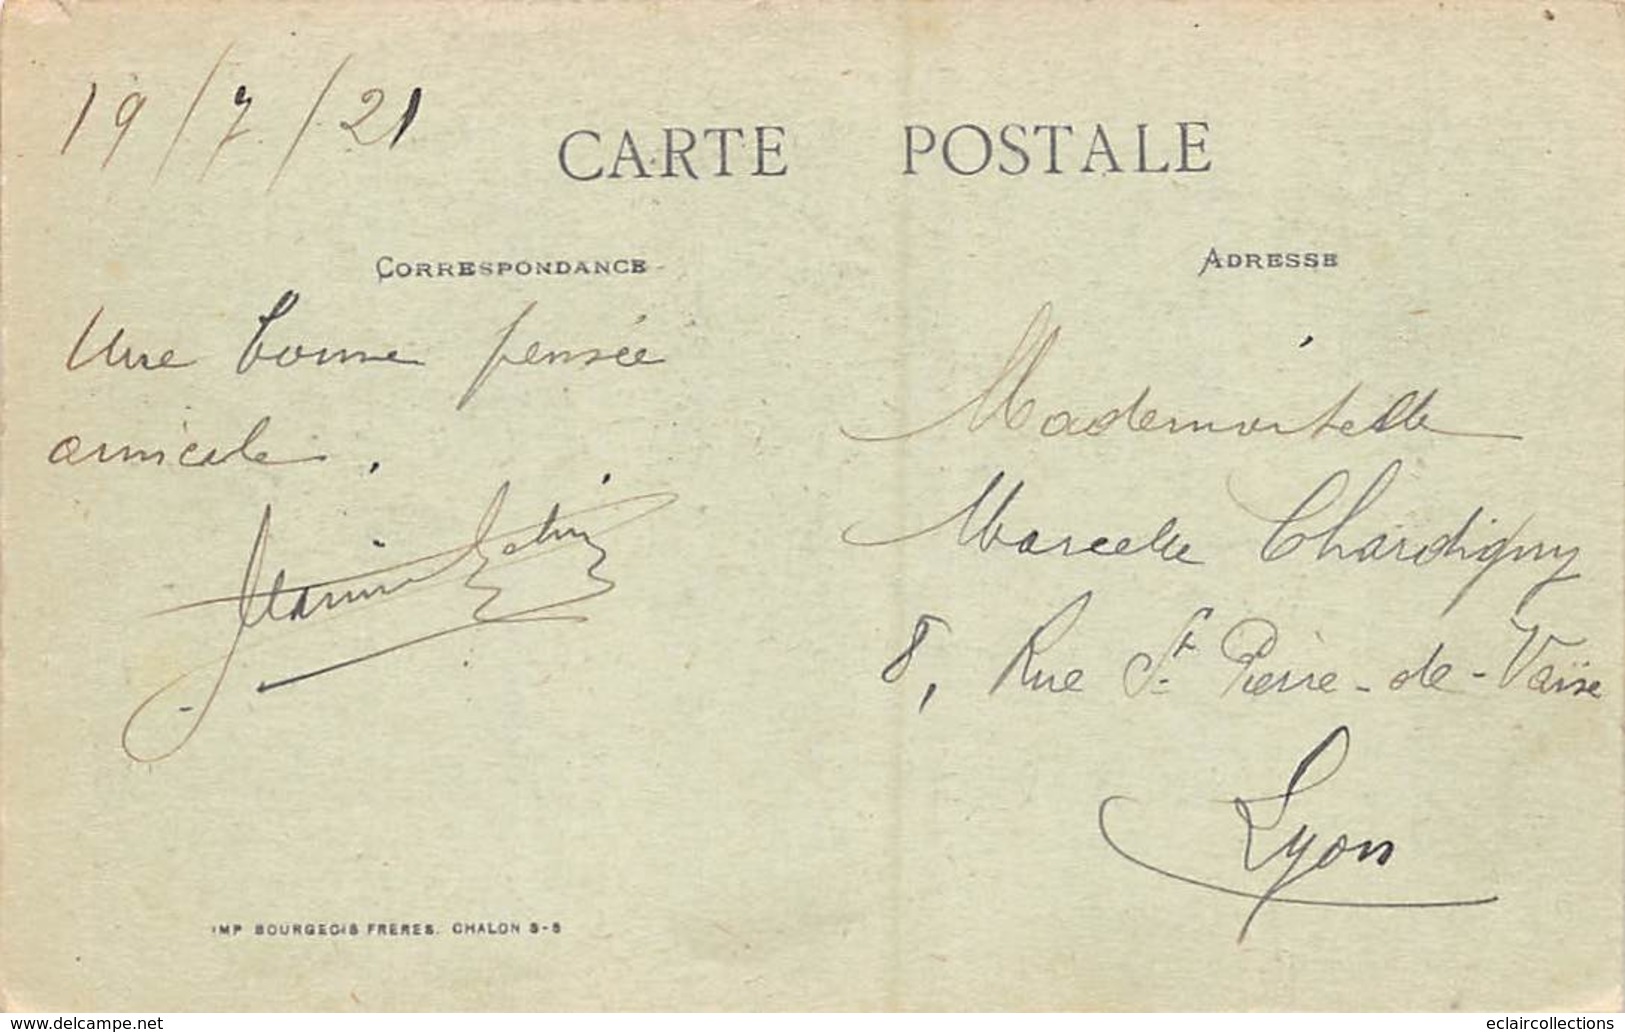 19/7/21
CARTE POSTALE
CORRESPONDANCE
Une bonne pensée
amicale.
ADRESSE
Mademoiselle
Marcelle Chardigny
8, Rue St Pierre-de-Vaise
Lyon
IMP BOURGEOIS FRERES. CHALON S-S
www.delcampe.net
eclaircollections